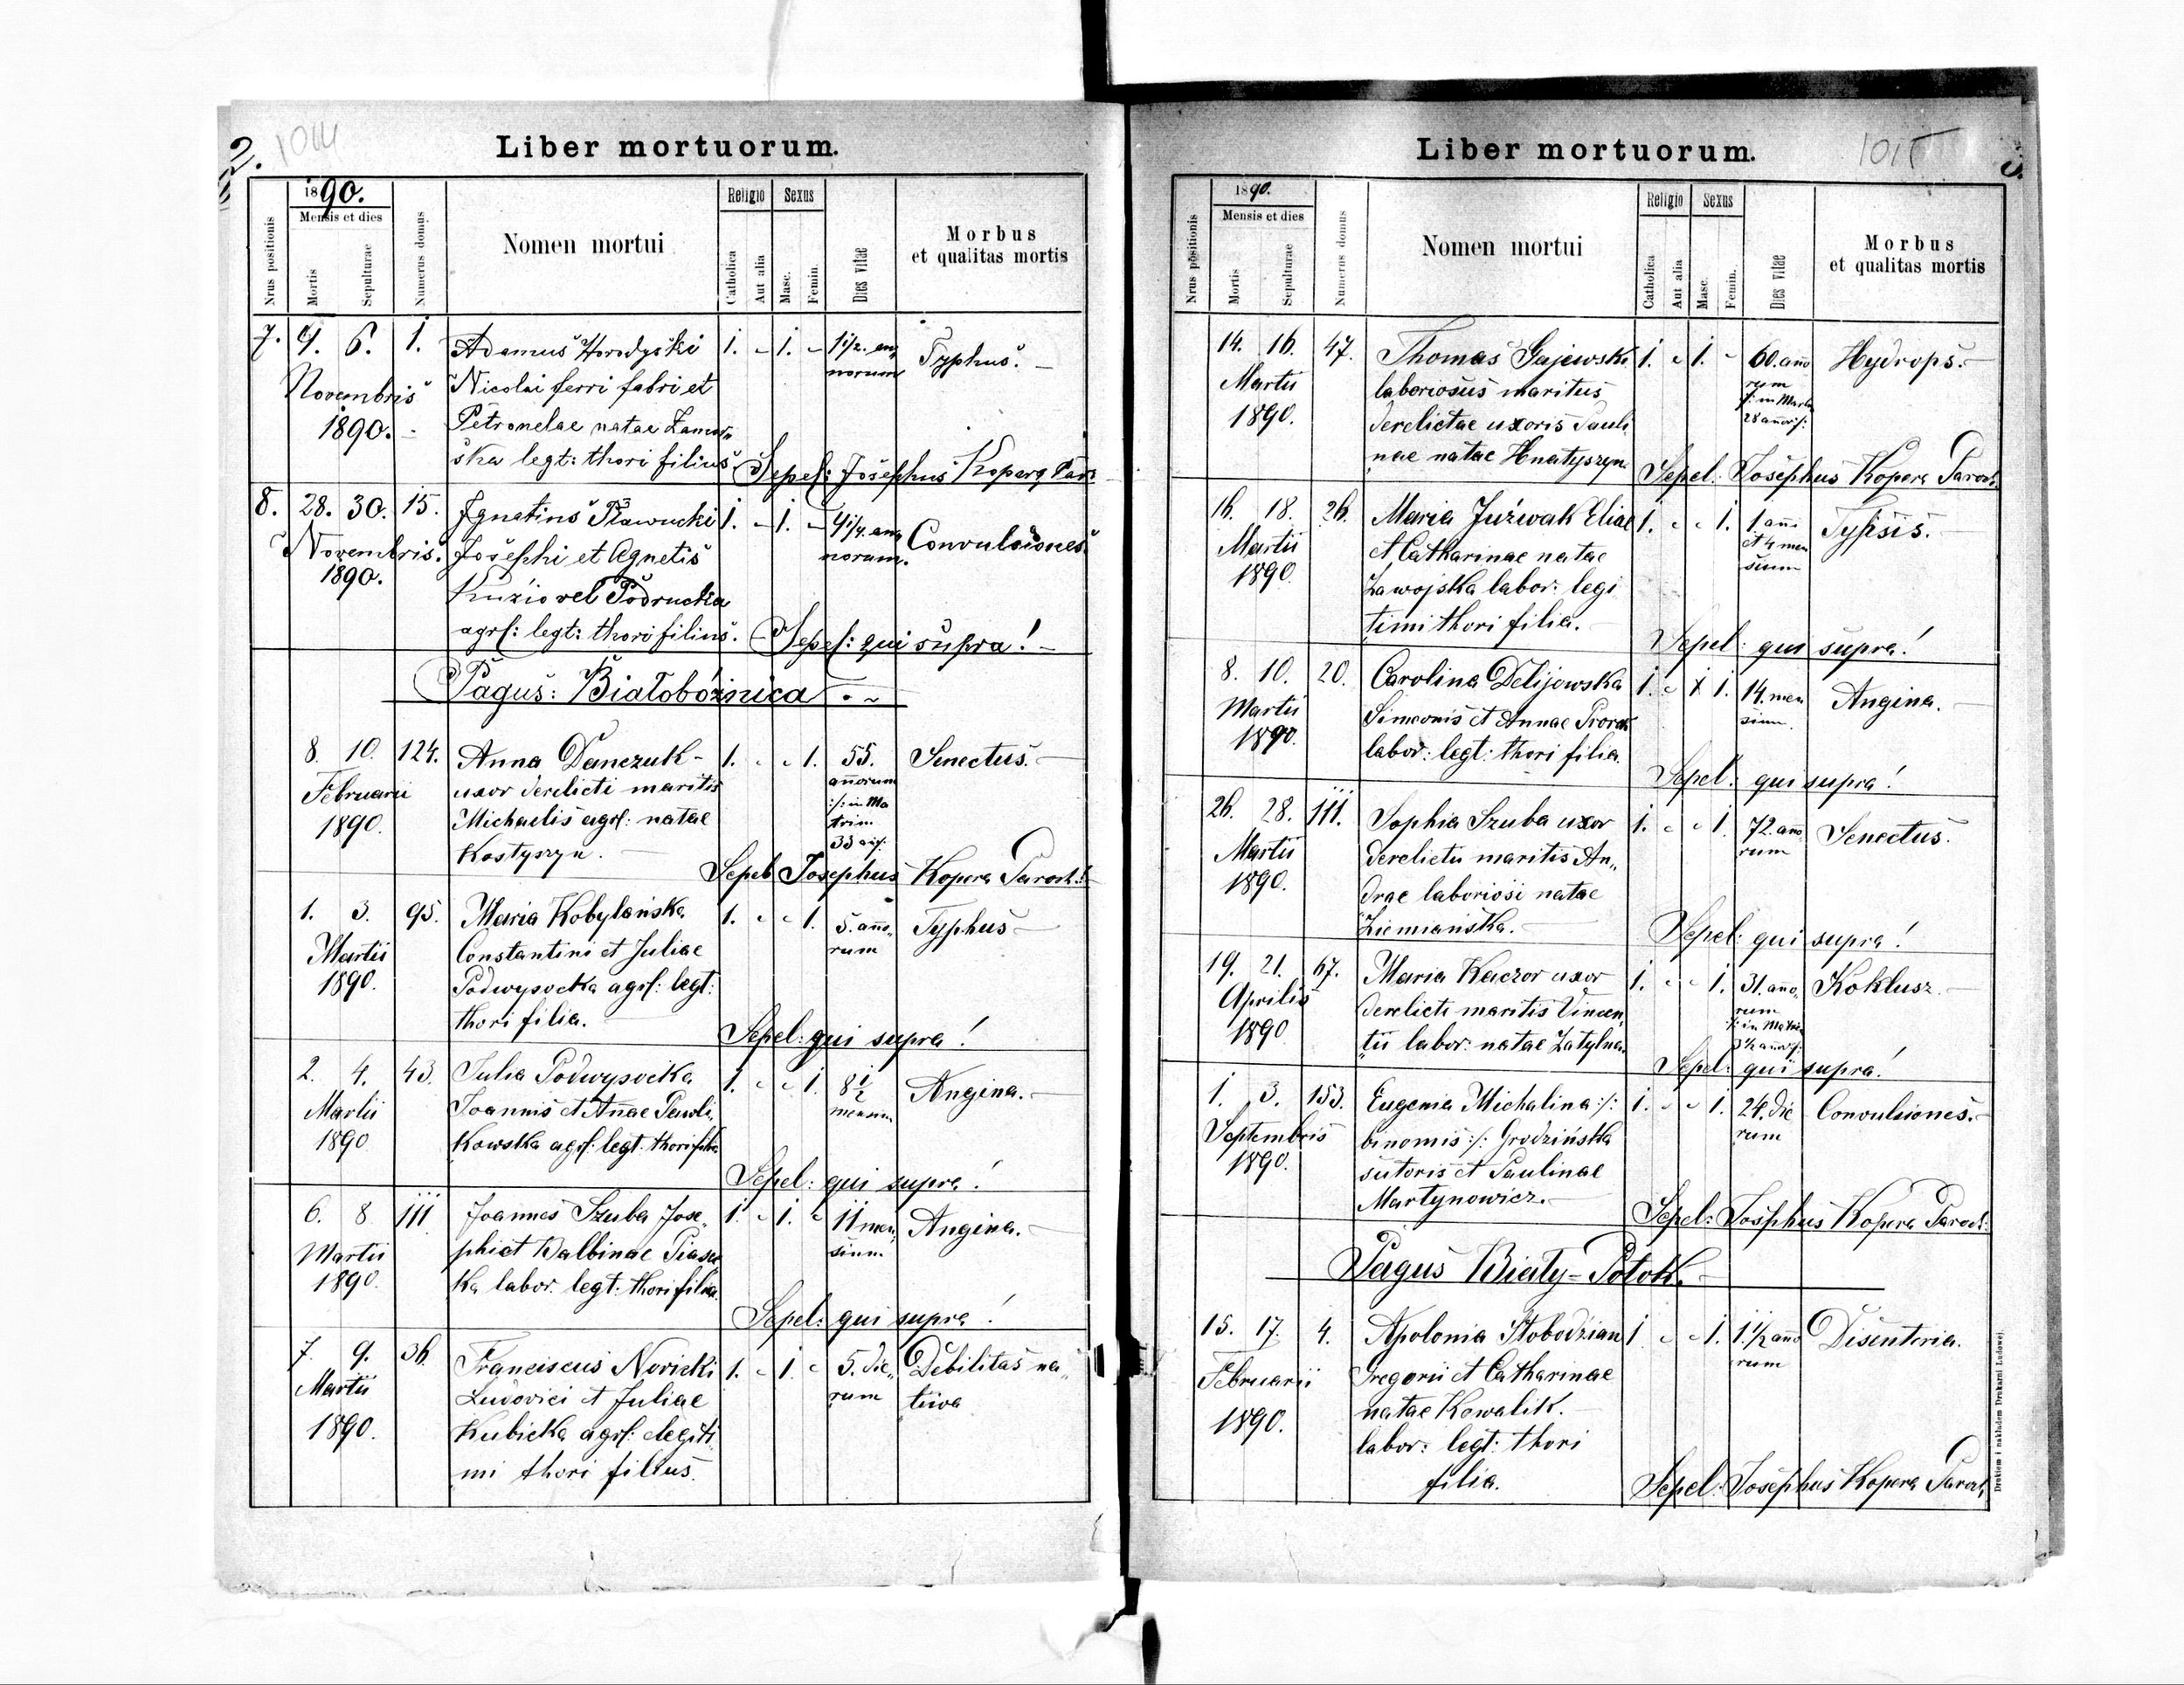 2.
1014
Liber mortuorum.
Nrus positionis
1890.
Mensis et dies
Mortis
Sepulturae
Numerus domus
Nomen mortui
Religio
Catholica
Aut alia
Sexus
Masc.
Femin.
Dies vitae
Morbus
et qualitas mortis
7. 4. 6. 1. Adamus Horodyski 1. - 1. - 1 1/2. an
norum Typhus. -
Novembris Nicolai ferri fabri et
1890. - Petronelae natae Zamoy
ska legt: thori filius Sepel: Josephus Kopera Par:
8. 28. 30. 15. Ignatius 1. - 1. - 4 1/4. an
norum. Convulsiones
Novembris. Josephi et Agnetis
1890. Kuzio vel Podrucka
agrl: legt: thori filius. Sepel: qui supra! -
Pagus: Białobóżnica
8. 10. 124. Anna Danczuk - 1. - - 1. 55. Senectus. -
Februarii uxor derelicti maritis annorum
1890. Michaelis agrl: natae :/: in Ma
Kostyszyn. - trim
33 a:/:
Sepel: Josephus Kopera Paroch:
1. 3. 95. Maria Kobylańska 1. - - 1. 5. anno- Typhus -
Martii Constantini et Juliae rum
1890. Podwysocka agrl: legt:
thori filia. - Sepel: qui supra!
2. 4. 43. Julia Podwysocka 1. - - 1. 8 1/2 Angina. -
Martii Joannis et Annae Pawli mensium
1890 kowska agrl: legt: thori filia
Sepel: qui supra!
6. 8 111 Joannes Szuba Jose- 1. - 1. - 11 men Angina. -
Martii phi et Balbinae Piasec sium
1890. ka labor: legt: thori filius
Sepel: qui supra!
7. 9. 36. Franciscus Novicki 1. - 1. - 5. die- Debilitas na-
Martii Ludovici et Juliae rum tiva
1890. Kubicka agrl: legiti
mi thori filius.
1015
3.
Liber mortuorum.
Nrus positionis
1890.
Mensis et dies
Mortis
Sepulturae
Numerus domus
Nomen mortui
Religio
Catholica
Aut alia
Sexus
Masc.
Femin.
Dies vitae
Morbus
et qualitas mortis
14. 16. 47. Thomas Gajewski 1. - 1. - 60. anno Hydrops. -
Martii laboriosus maritus rum
1890. derelictae uxoris Pauli :/: in Matr
nae natae Hnatyszyn 28 annor:/:
Sepel: Josephus Kopera Paroch.
16. 18. 26. Maria Juźwak Eliae 1. - - 1. 1. anni Typsis. -
Martii et Catharinae natae et 4 men
1890. Zawojska labor: legi sium
timi thori filia. - Sepel: qui supra!
8. 10. 20. Carolina Delijowska 1. - x 1. 14. men Angina. -
Martii Simeonis et Annae sium.
1890. labor: legt: thori filia.
Sepel: qui supra!
26. 28. 111. Sophia Szuba uxor 1. - - 1. 72. anno Senectus.
Martii derelicta maritis An- rum
1890. drae laboriosi natae
Ziemiańska. - Sepel: qui supra!
19. 21. 67. Maria Kaczor uxor 1. - - 1. 31. anno- Koklusz -
Aprilis derelicti maritis Vincen rum
1890 tii labor: natae Zatylna :/: in Matri
3 1/2 annor:/:
Sepel: qui supra!
1. 3. 153. Eugenia Michalina :/: 1. - - 1. 24. die Convulsiones. -
Septembris binomis :/: Grodzińska rum
1890. sutoris et Paulinae
Martynowicz. -
Sepel: Josphus Kopera Paroch:
Pagus Biały-Potok. -
15. 17. 4. Apolonia Słobodzian 1 - - 1. 1. 1/2 anno Disenteria.
Februarii Gregorii et Catharinae rum
1890. natae Kowalik. -
labor: legt: thori
filia.
Sepel: Josephus Kopera Paroch
Drukiem i nakładem Drukarni Ludowej.